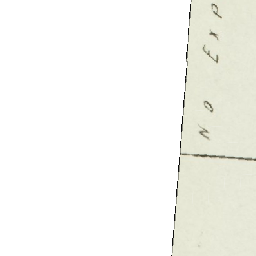 NO EXP